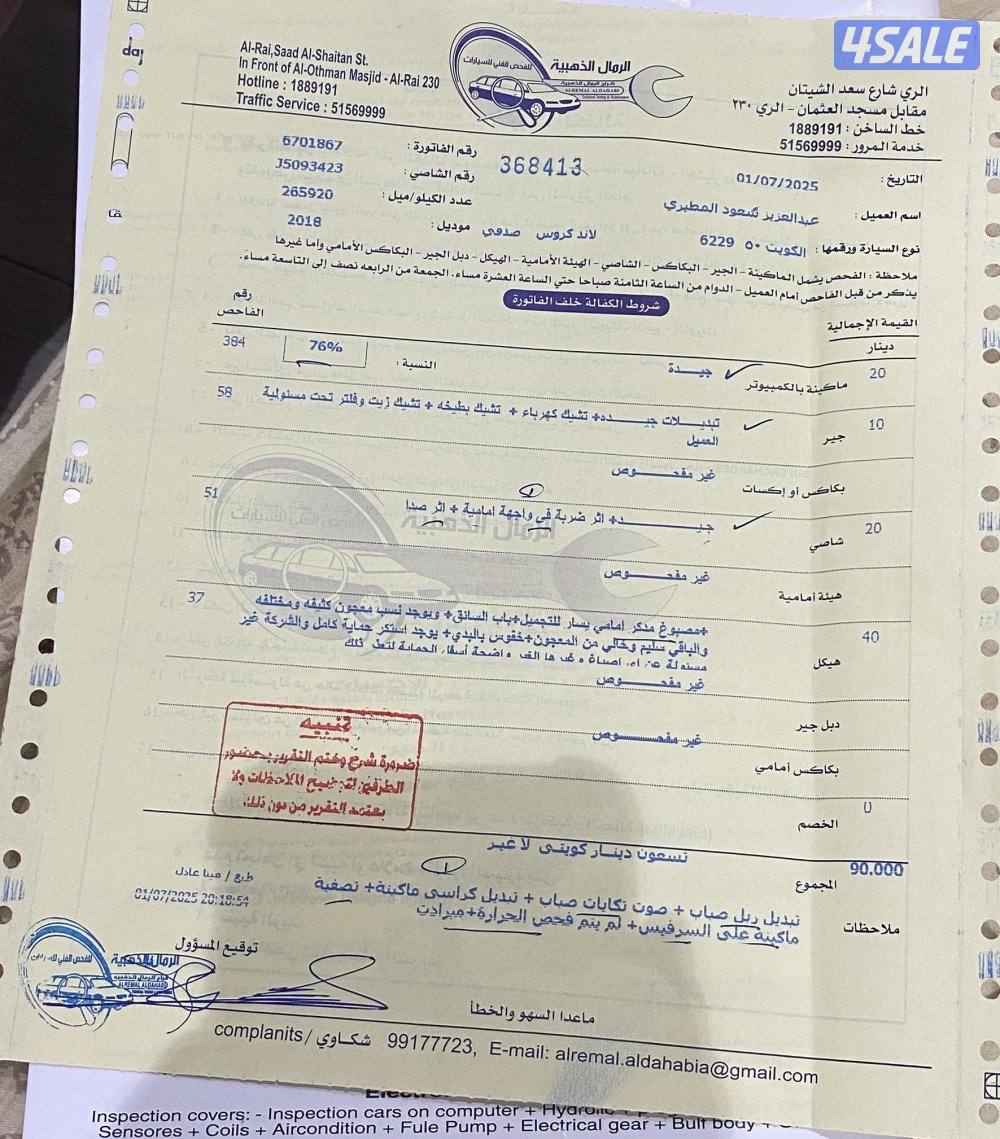 4SALE
Al-Rai,Saad Al-Shaitan St.
In Front of Al-Othman Masjid - Al-Rai 230
Hotline : 1889191
Traffic Service : 51569999
الرمال الذهبية
للفحص الفني للسيارات
كراج الرمال الذهبية
ALREMAL ALDAHABI
الري شارع سعد الشيتان
مقابل مسجد العثمان - الري ٢٣٠
خط الساخن : 1889191
خدمة المرور : 51569999
رقم الفاتورة : 6701867
368413
التاريخ : 01/07/2025
رقم الشاصي : J5093423
اسم العميل : عبدالعزيز شعود المطيري
عدد الكيلو/ميل : 265920
نوع السيارة ورقمها : الكويت ٥٠ 6229 لاند كروس صدفي
موديل : 2018
ملاحظة : الفحص يشمل الماكينة - الجير - البكاكس - الشاصي - الهيئة الأمامية - الهيكل - دبل الجير - البكاكس الأمامي وأما غيرها
يذكر من قبل الفاحص امام العميل - الدوام من الساعة الثامنة صباحا حتي الساعة العشرة مساء. الجمعة من الرابعه نصف إلى التاسعة مساء.
شروط الكفالة خلف الفاتورة
القيمة الإجمالية
دينار
رقم الفاحص
20 ماكينة بالكمبيوتر جيـدة النسبة : 76% 384
10 جير تبديـلات جيـده+ تشيك كهرباء + تشيك بطيخه + تشيك زيت وفلتر تحت مسئولية 58
العميل
بكاكس او إكسات غير مفحـوص
20 شاصي جيـد+ اثر ضربة في واجهة امامية + اثر صدا 51
هيئة أمامية غير مفحـوص
40 هيكل +مصبوغ مدكر امامي يسار للتجميل+باب السائق+ ويوجد نسب معجون كثيفه ومختلفه 37
والباقي سليم وخالي من المعجون+خفوس بالبدي+ يوجد استكر حماية كامل والشركة غير
دبل جير غير مفحـوص
بكاكس أمامي غير مفحـوص
الخصم 0
تنبيه
ضرورة شرح وختم التقرير بحضور
الطرفين لتوضيح الملاحظات ولا
يعتمد التقرير من دون ذلك
90.000 المجموع تسعون دينار كويتى لا غير
ملاحظات تبديل ربل صباب + صوت تكايات صباب + تبديل كراسى ماكينة+ تصفية
ماكينة على السرفيس+ لم يتم فحص الحرارة+مبرادت
طبع / مينا عادل
01/07/2025 20:18:54
توقيع المسؤول
ماعدا السهو والخطأ
complanits / شكـاوي 99177723, E-mail: alremal.aldahabia@gmail.com
Inspection covers: - Inspection cars on computer +
Sensores + Coils + Aircondition + Fule Pump + Electrical gear +